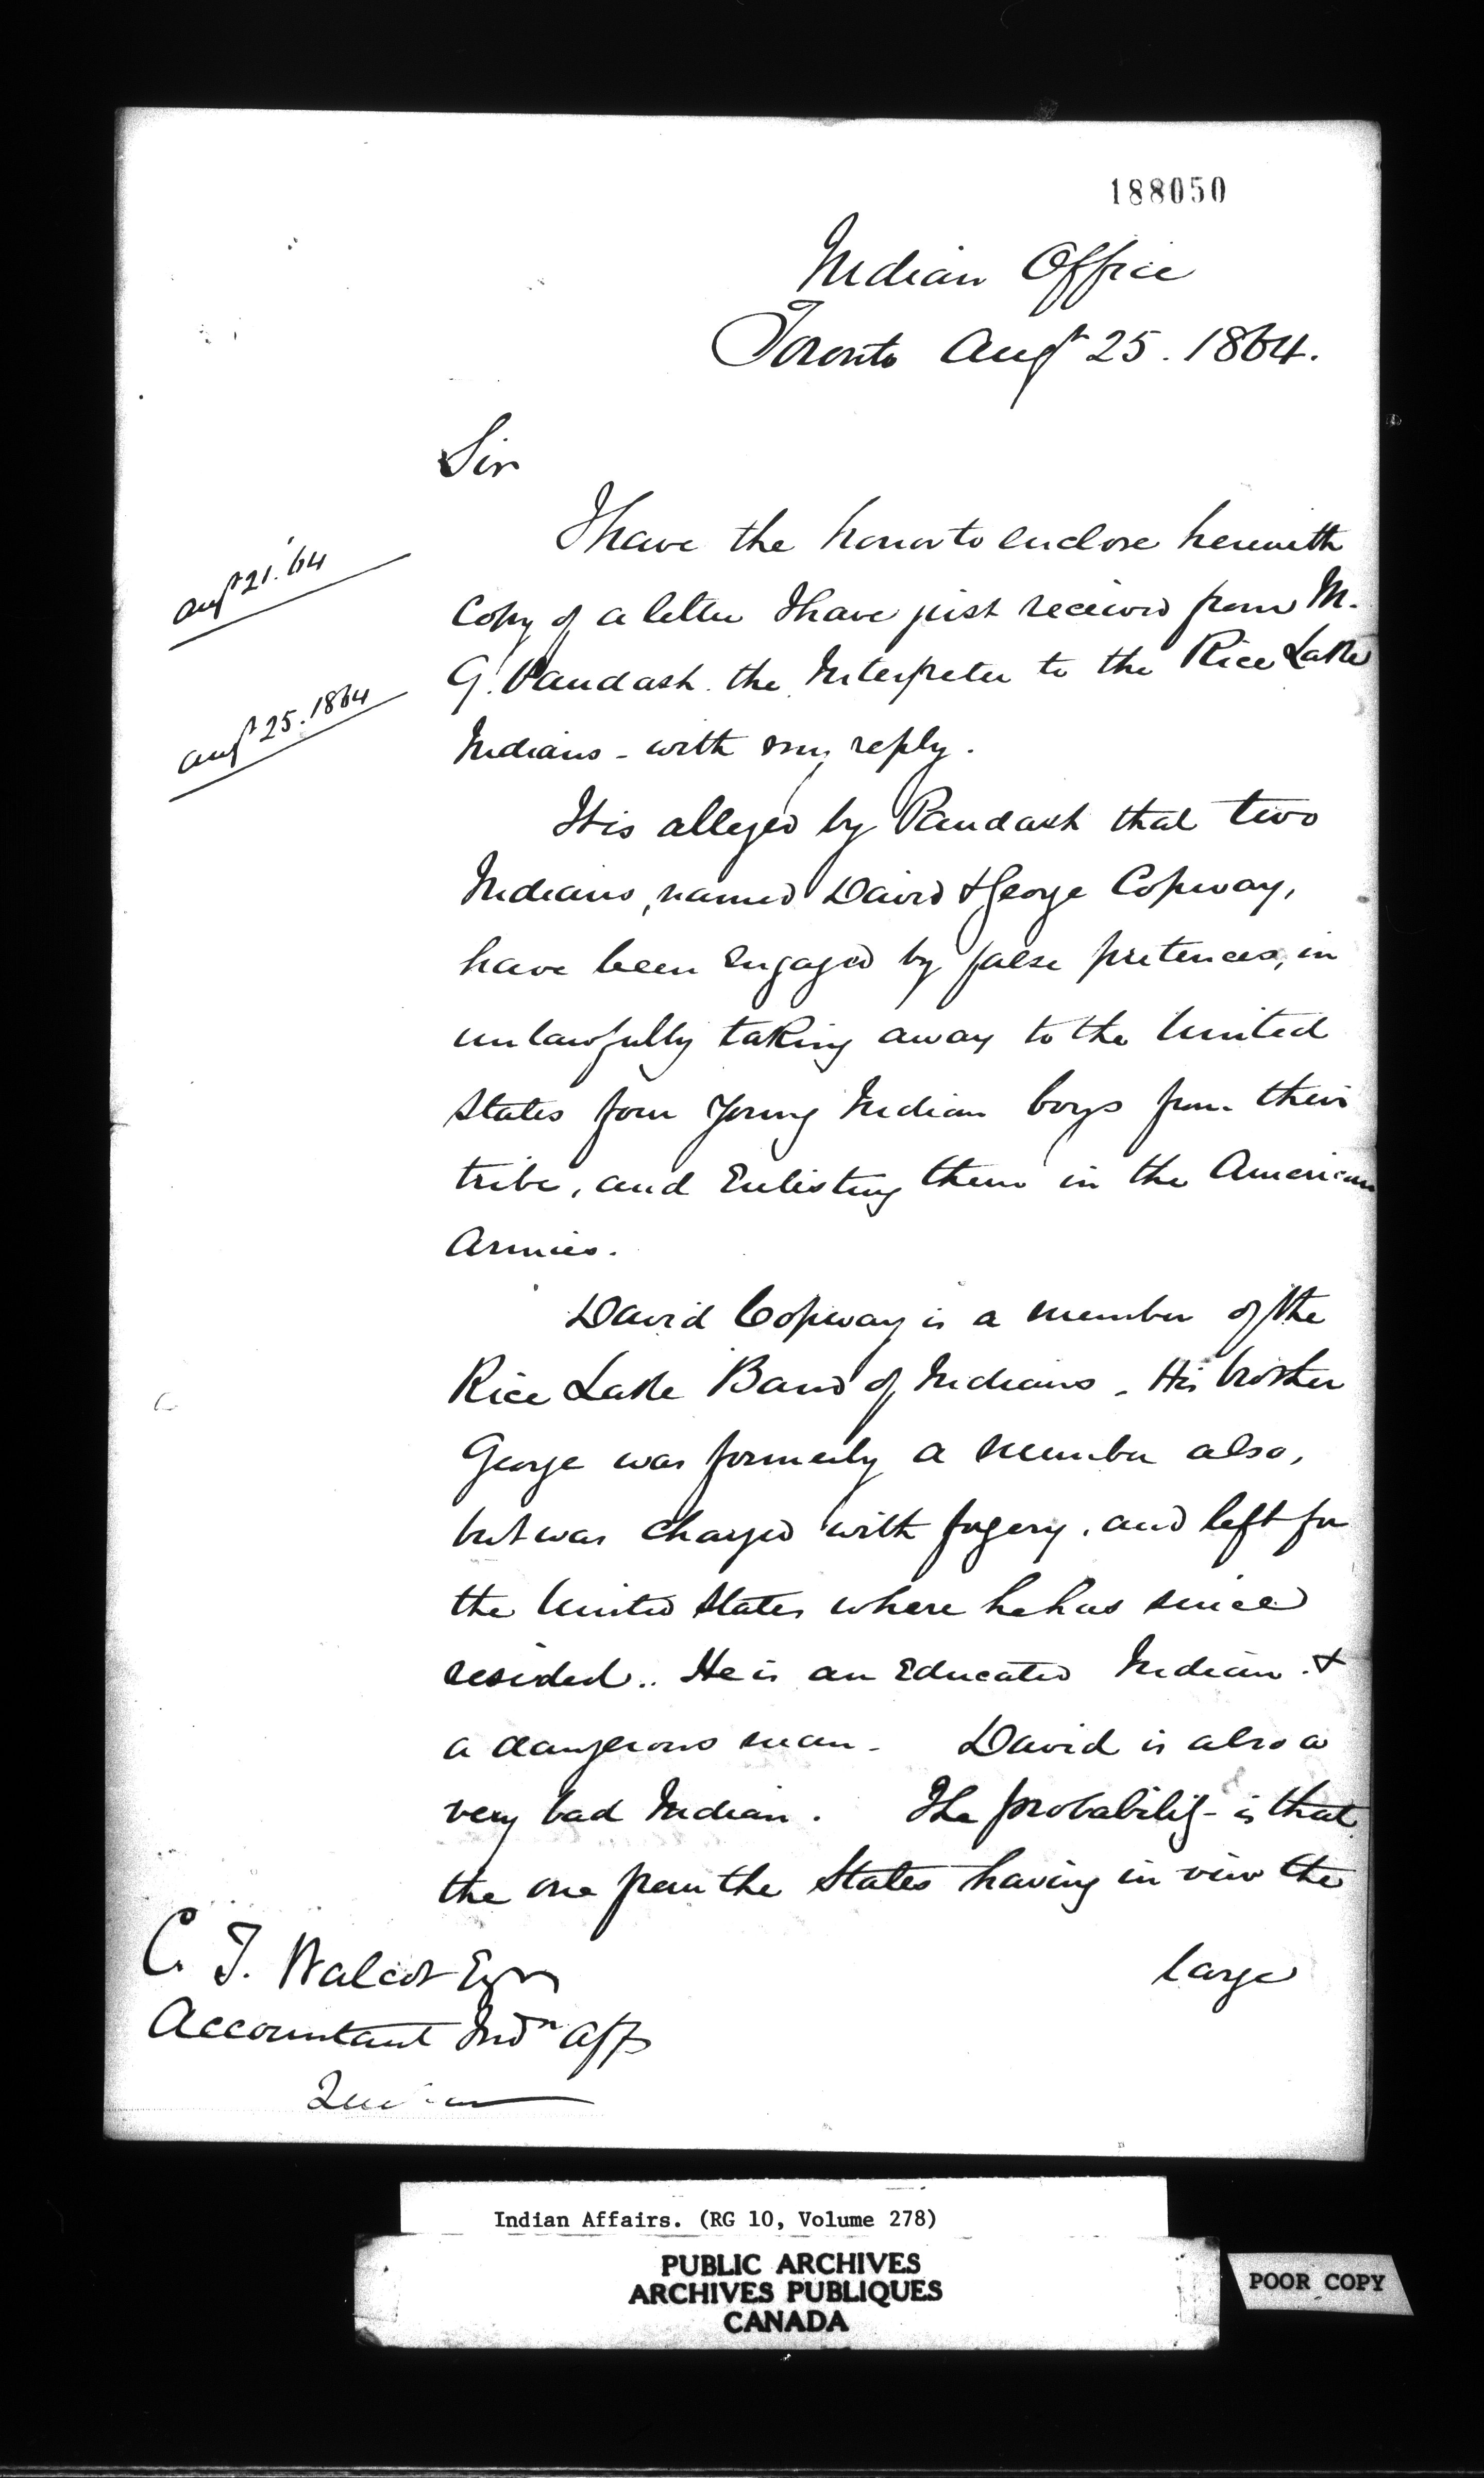 188050
Indian Office
Toronto Augt 25. 1864.
Sir
I have the honor to enclose herewith
Augt 21. '64
Copy of a letter I have just received from M.
G. Paudash the Interpreter to the Rice Lake
Augt 25. 1864
Indians - with my reply.
It is alleged by Paudash that two
Indians, named David & George Copway,
have been engaged by false pretences, in
unlawfully taking away to the United
States four young Indian boys from their
tribe, and Enlisting them in the American
Armies.
David Copway is a member of the
Rice Lake Band of Indians. His brother
George was formerly a member also,
but was charged with forgery, and left for
the United States where he has since
resided.. He is an Educated Indian &
a dangerous man - David is also a
very bad Indian. The probability is that
the one from the States having in view the
large
C. T. Walcot Esqr
Accountant Indn Affs
Indian Affairs. (RG 10, Volume 278)
PUBLIC ARCHIVES
ARCHIVES PUBLIQUES
CANADA
POOR COPY